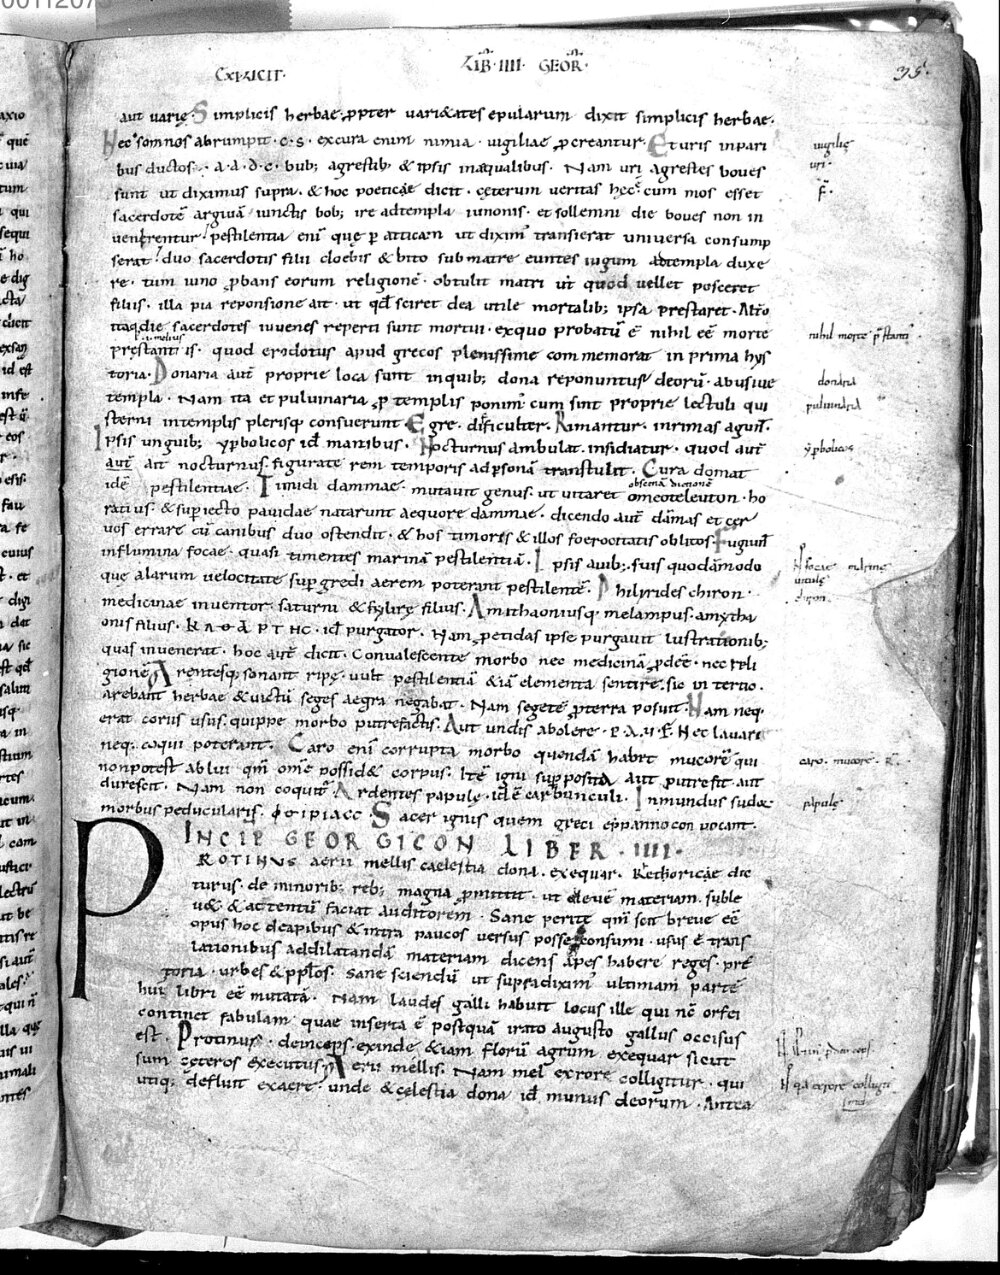 EXPLICIT· LIB· IIII · GEOR· 35·
aut varię· Simplicis herbae ppter vari&ates epularum dixit simplicis herbae·
Nec somnos abrumpit · c · s · ex cura enim nimia · uigiliae pcreantur· Et uris inpari
bus ductos · a · a · d · c · bub; agrestib; & ipsis inaequalibus · Nam uri agrestes boues
sunt ut diximus supra · & hoc poeticae dicit · cęterum veritas hęc cum mos esset
sacerdotē argiuā iunctis bob; ire ad templa iunonis · et sollemni die boues non in
uenirentur pestilentia eni que p atticam ut dixim transierat universa consump
serat duo sacerdotis filii cloebis & bito sub matre euntes iugum ad templa duxe
re · tum iuno pbans eorum religionē · obtulit matri ut quod uellet posceret
filiis · illa pia reponsione ait · ut qd sciret dea utile mortalib; ipsa prestaret · Alt͞o
itaq; die sacerdotes iuuenes reperti sunt mortui · ex quo probatū ē nihil eē morte
prestanti is · quod erodotus apud grecos plenissime commemorat in prima hys
toria · Donaria aut proprie loca sunt in quib; dona reponuntur deorū · abusiue
templa · Nam ita et puluinaria p templis ponim cum sint proprie lectuli qui
sterni in templis plerisq consuerunt Egre · difficulter · Rimantur · in rimas agunt·
Ipsis unguib; yperbolicos id manibus · Nocturnus ambulat · insidiatur · quod aut
aut ait nocturnus figurate rem temporis ad psonā transtulit · Cura domat
idē pestilentiae · Timidi dammae · mutauit genus · ut uitaret omoeoteleuton · ho
ratius · & supiecto pauidae natarunt aequore dammae · dicendo aut dāmas et cer
uos errare cū canibus duo ostendit · & hos timoris & illos foerocitatis oblitos· Fugiunt
in flumina focae · quasi timentes marinā pestilentiā · Ipsis auib; · suis quodāmodo
que alarum uelocitate supgredi aerem poterant pestilentē · Philyrides chiron ·
medicinae inuentor saturni & fylirę filius · Amithaoniusq melampus · amytha
onis filius · ΚΑΘΑΡΤΗС · id purgator · Nam petidas ipse purgauit lustrationib;
quas inuenerat · hoc aut dicit · Conualescente morbo nec medicinā pdeē · nec reli
gionē Arentesq; sonant ripę · uult pestilentiā &iā elementa sentire · sic in tertio ·
arebant herbae & uictū seges aegra negabat · Nam segetē p terra posuit · Nam neq·
erat coriis usus · quippe morbo putrefactis · Aut undis abolere · P · A · V · F · Nec lauari
neq; coqui poterant · Caro enī corrupta morbo quendā habet mucorē qui
non potest ablui qm̄ omē possid& corpus · Itē igni supposita aut putrefit aut
durescit · Nam non coquit Ardentes papulę · id ē carbunculi · Inmundus sudor
morbus pedicularis · Sacer ignis quem greci vocant·
INCIP GEORGICON LIBER · IIII·
PROTINVS aerii mellis caelestia dona · exequar · Rethoricae dic
turus · de minorib; reb; magna pmittit · ut & leuē materiam · suble
u& & attentū faciat auditorem · Sane perite qm̄ scit breue eē
opus hoc de apibus & intra paucos uersus posse consumi · usus ē trans
lationibus ad dilatandā materiam dicens apes habere reges · prę
toria · urbes & pplos · sane sciendū ut supra diximˀ ultimam partē
huiˀ libri eē mutatā · Nam laudes galli habuit locus ille qui nc̄ orfei
continet fabulam · quae inserta ē postquā irato augusto gallus occisus
est · Protinus · deinceps · exinde &iam florū agrum exequar sicut
sum cęteros executus Aerii mellis · Nam mel ex rore colligitur · qui
utiq; defluit ex aere · unde & cęlestia dona id munus deorum · Antea
uigilię
uri ·
nihil morte pstanti
donaria
puluinaria
yperbolicos
N focae marinę
uitulę
chiron
caro · mucore ·
papulę·